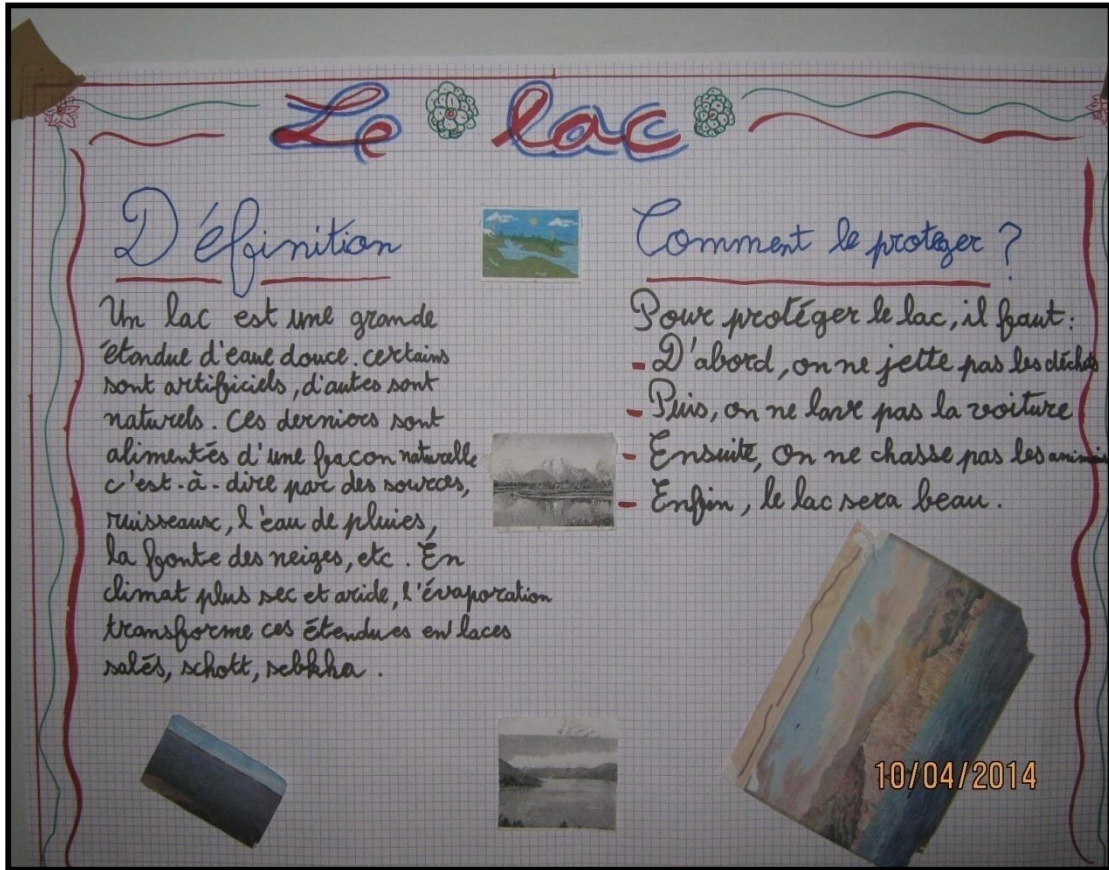 Le lac
Définition
Un lac est une grande
étendue d'eau douce. certains
sont artificiels, d'autes sont
naturels. Ces derniers sont
alimentés d'une façon naturelle
c'est-à-dire par des sources,
ruisseaux, l'eau de pluies,
la fonte des neiges, etc. En
climat plus sec et aride, l'évaporation
transforme ces étendues en laces
salés, schott, sebkha.
Comment le protéger ?
Pour protéger le lac, il faut :
- D'abord, on ne jette pas les déchets
- Puis, on ne lave pas la voiture
- Ensuite, on ne chasse pas les animais
- Enfin, le lac sera beau.
10/04/2014